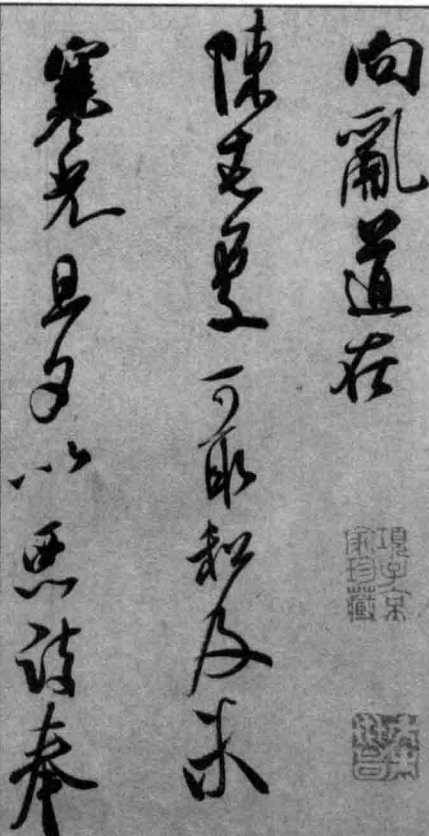 向亂道在
陳老處可取和及米
寒光旦夕以惡詩奉
項子京
家珍藏